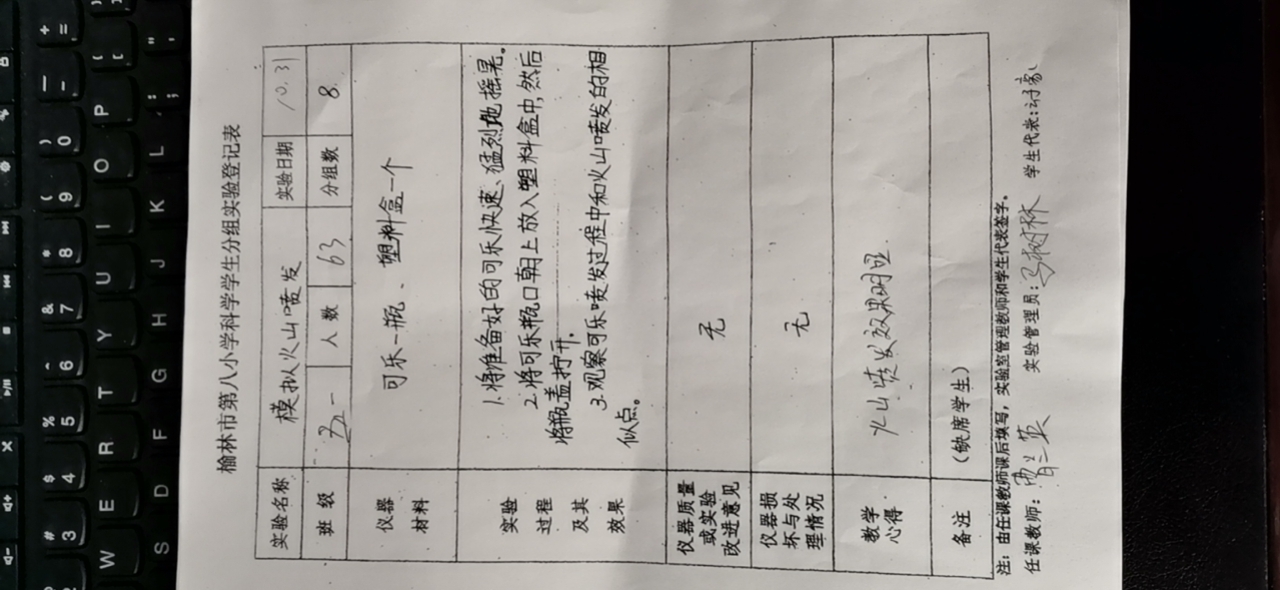 榆林市第八小学科学学生分组实验登记表
实验名称 模拟火山喷发 实验日期 10.31
班 级 五一 人 数 63 分组数 8
仪器
材料
可乐一瓶、塑料盒一个
实验
过程
及其
效果
1.将准备好的可乐快速、猛烈地摇晃。
2.将可乐瓶口朝上放入塑料盒中,然后
将瓶盖拧开.
3.观察可乐喷发过程中和火山喷发的相
似点。
仪器质量
或实验
改进意见
无
仪器损
坏与处
理情况
无
教学
心得
火山喷发效果明显.
备注
(缺席学生)
注:由任课教师课后填写,实验室管理教师和学生代表签字。
任课教师:曹兰英 实验管理员:马树林 学生代表:
W E R T Y U I O P
S D F G H J K L
# 3 $ 4 % 5 ^ 6 & 7 * 8 ( 9 ) 0 — - + =